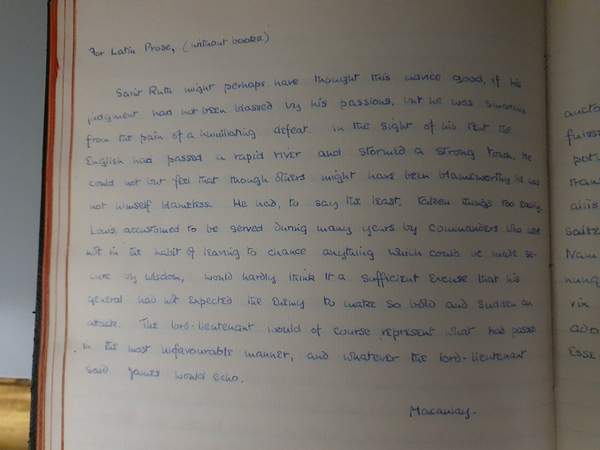 For Latin Prose, (without books)
Saint Ruth might perhaps have thought this advice good, if his
judgment had not been biassed by his passions, but he was smarting
from the pain of a humiliating defeat. In the sight of his tent the
English had passed a rapid river and stormed a strong town. He
could not but feel that though others might have been blameworthy he was
not himself blameless. He had, to say the least, taken things too easily.
Louis, accustomed to be served during many years by commanders who were
not in the habit of leaving to chance anything which could be made se-
cure by wisdom, would hardly think it a sufficient excuse that his
general had not expected the enemy to make so bold and sudden an
attack. The lord-lieutenant would of course represent what had passed
in the most unfavourable manner, and whatever the lord-lieutenant
said James would echo.
Macaulay.
aucto
fuiss
pot
tran
aliis
Nam
nunq
vix
ado
Esse